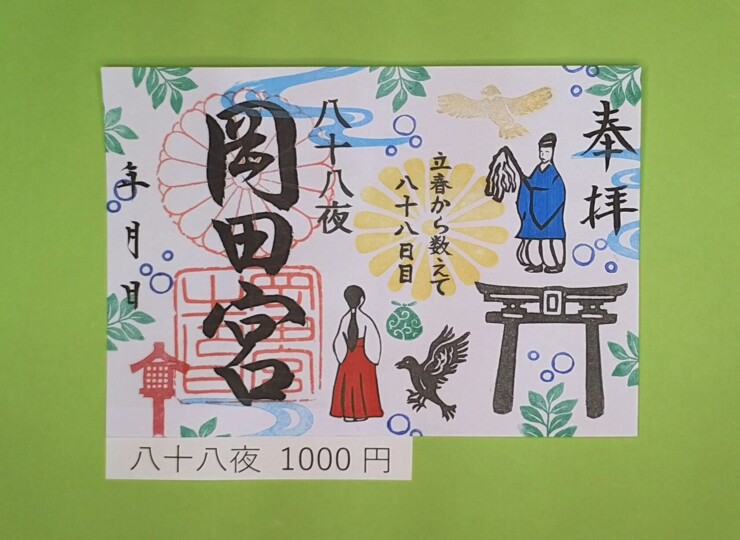 奉拝
立春から数えて
八十八日目
八十八夜
岡田宮
年月日
八十八夜 1000円